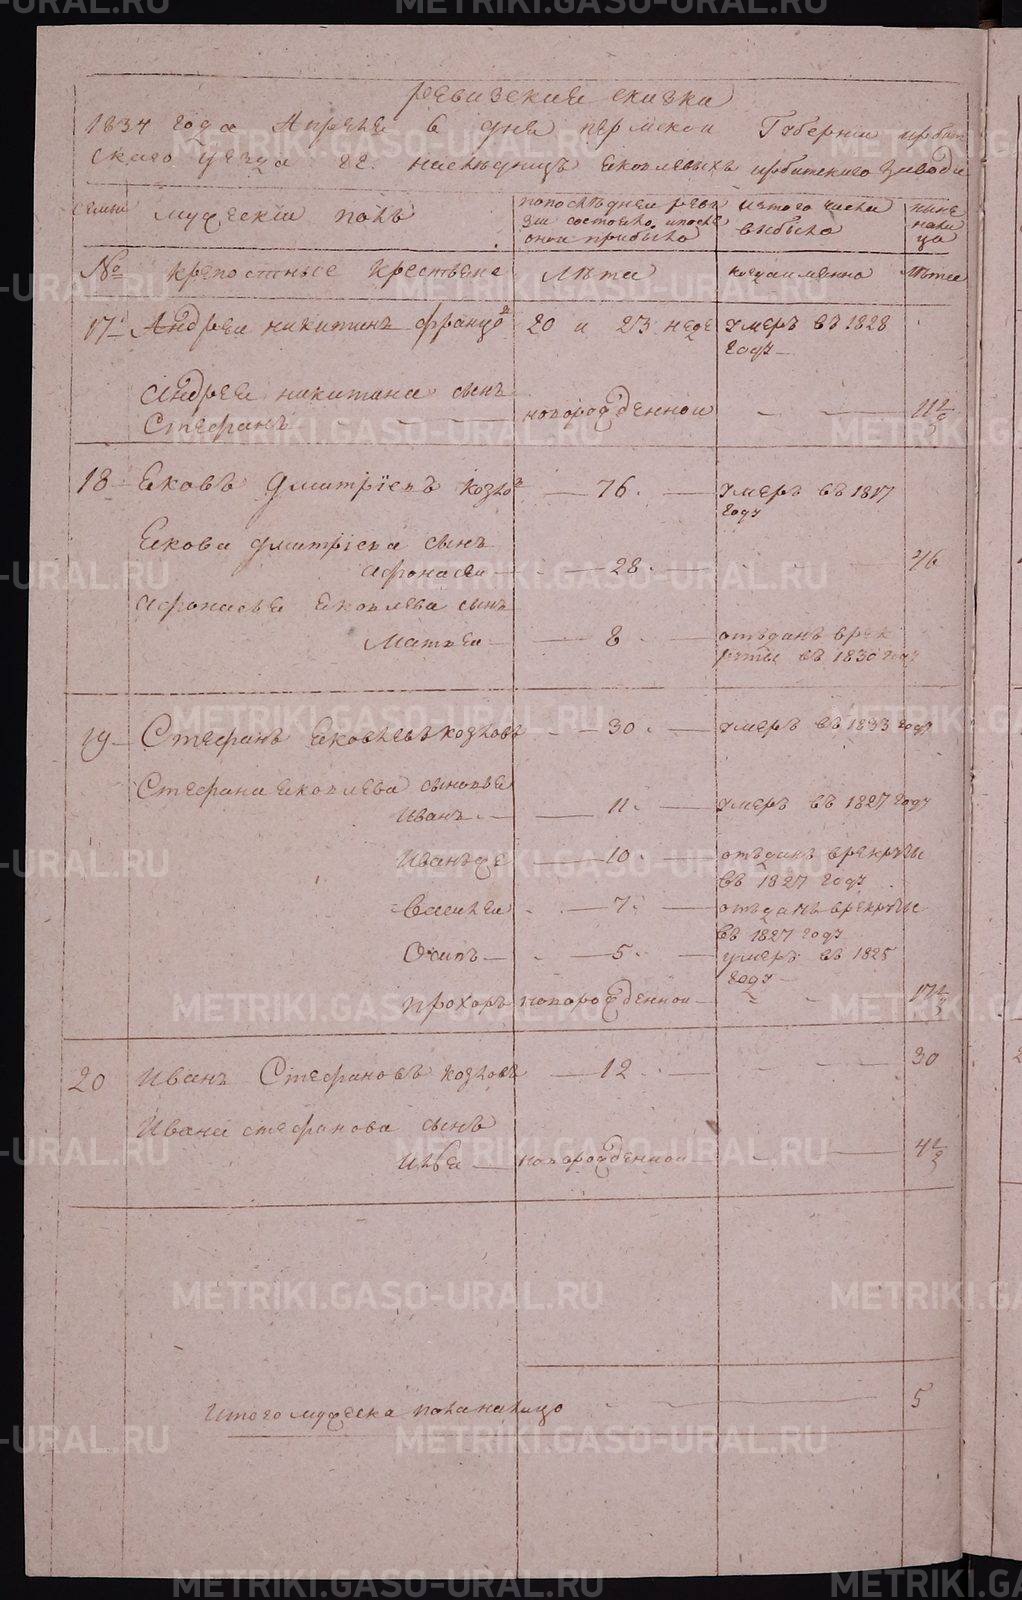 ревизские сказки
1834 года Апреля 6 дня пермской Губернии ирбит
скаго уезда гг. наследницъ яковлевыхъ ирбитскаго завода
семьи
мужескій полъ
попоследней реви
зіи состояло, ипосле
оной прибыло
изтого числа
выбыло
ныне
нали
цо
№
крепостные крестьяне
Лѣта
когдаименно
Лѣта
17 Андреи никитинъ францо 20 и 23 неде умеръ въ 1828
году
Андрея никитина сынъ
Стефанъ новорожденной 11 1/2
18 Яковъ Дмитріевъ козло 76. умеръ въ 1817
году
Якова дмитріева сынъ
Афонасеи 28. 46
Афонасья яковлева сынъ
Матвеи 8 отъданъ врек
руты въ 1830 году
19 Стефанъ Яковлевъ козловъ 30. умеръ въ 1833 году
Стефана яковлева сыновья
Иванъ 11. умеръ въ 1827 году
Иванъже 10. отъданъ врекруты
въ 1827 году
Василеи 7. отъданъ врекруты
въ 1827 году
Осипъ 5. умеръ въ 1825
году
прохоръ новорожденной 17 1/2
20 Иванъ Стефановъ козловъ 12 30
Ивана стефанова сынъ
Илья новорожденной 4 1/2
Итого мужеска поланалицо 5
METRIKI.GASO-URAL.RU